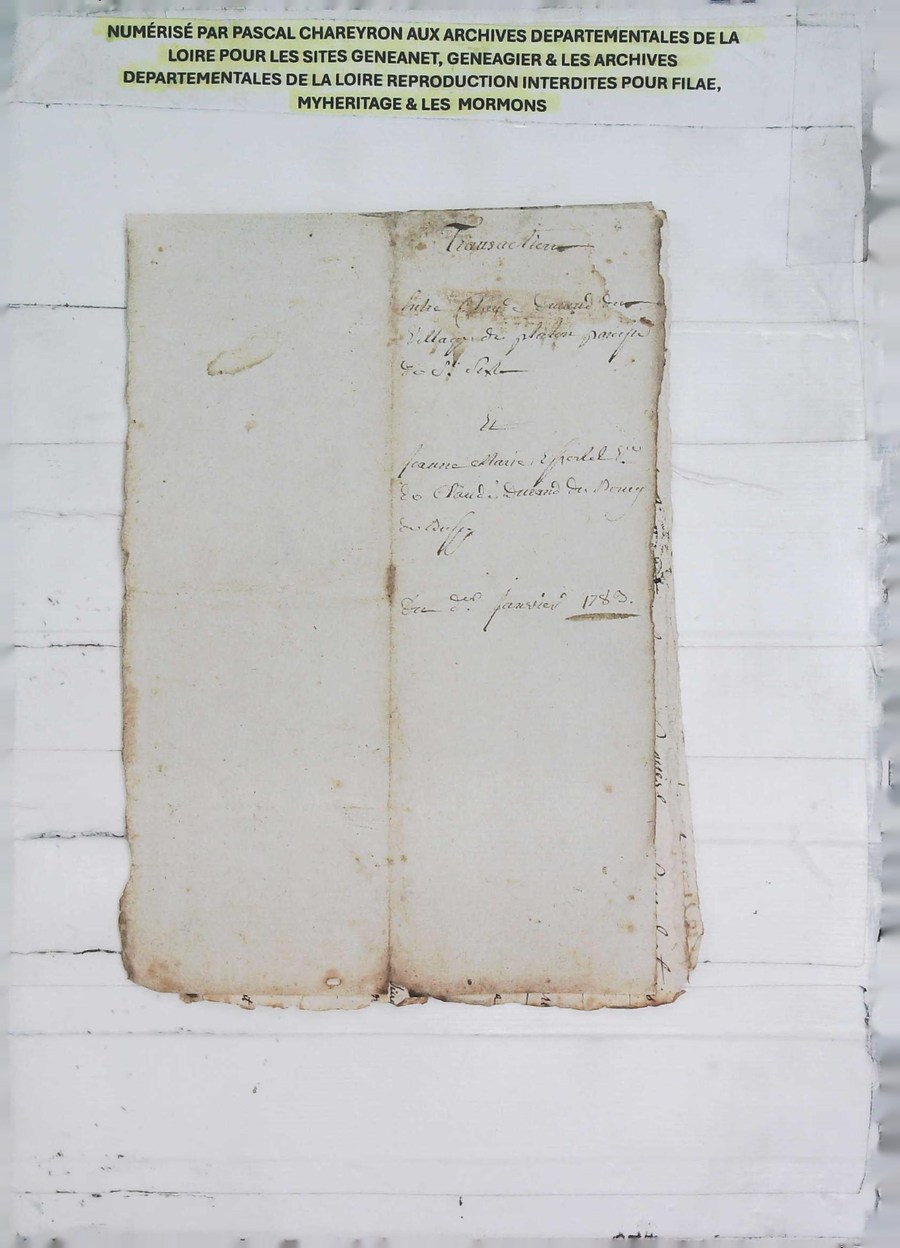 NUMÉRISÉ PAR PASCAL CHAREYRON AUX ARCHIVES DEPARTEMENTALES DE LA
LOIRE POUR LES SITES GENEANET, GENEAGIER & LES ARCHIVES
DEPARTEMENTALES DE LA LOIRE REPRODUCTION INTERDITES POUR FILAE,
MYHERITAGE & LES MORMONS
Transaction
Entre Claude Durand du
Village de paroisse
de St. Sixte
Et
Jeanne Marie Ve
de Claude Durand du Bourg
de Bussy
Du janvier 1783.